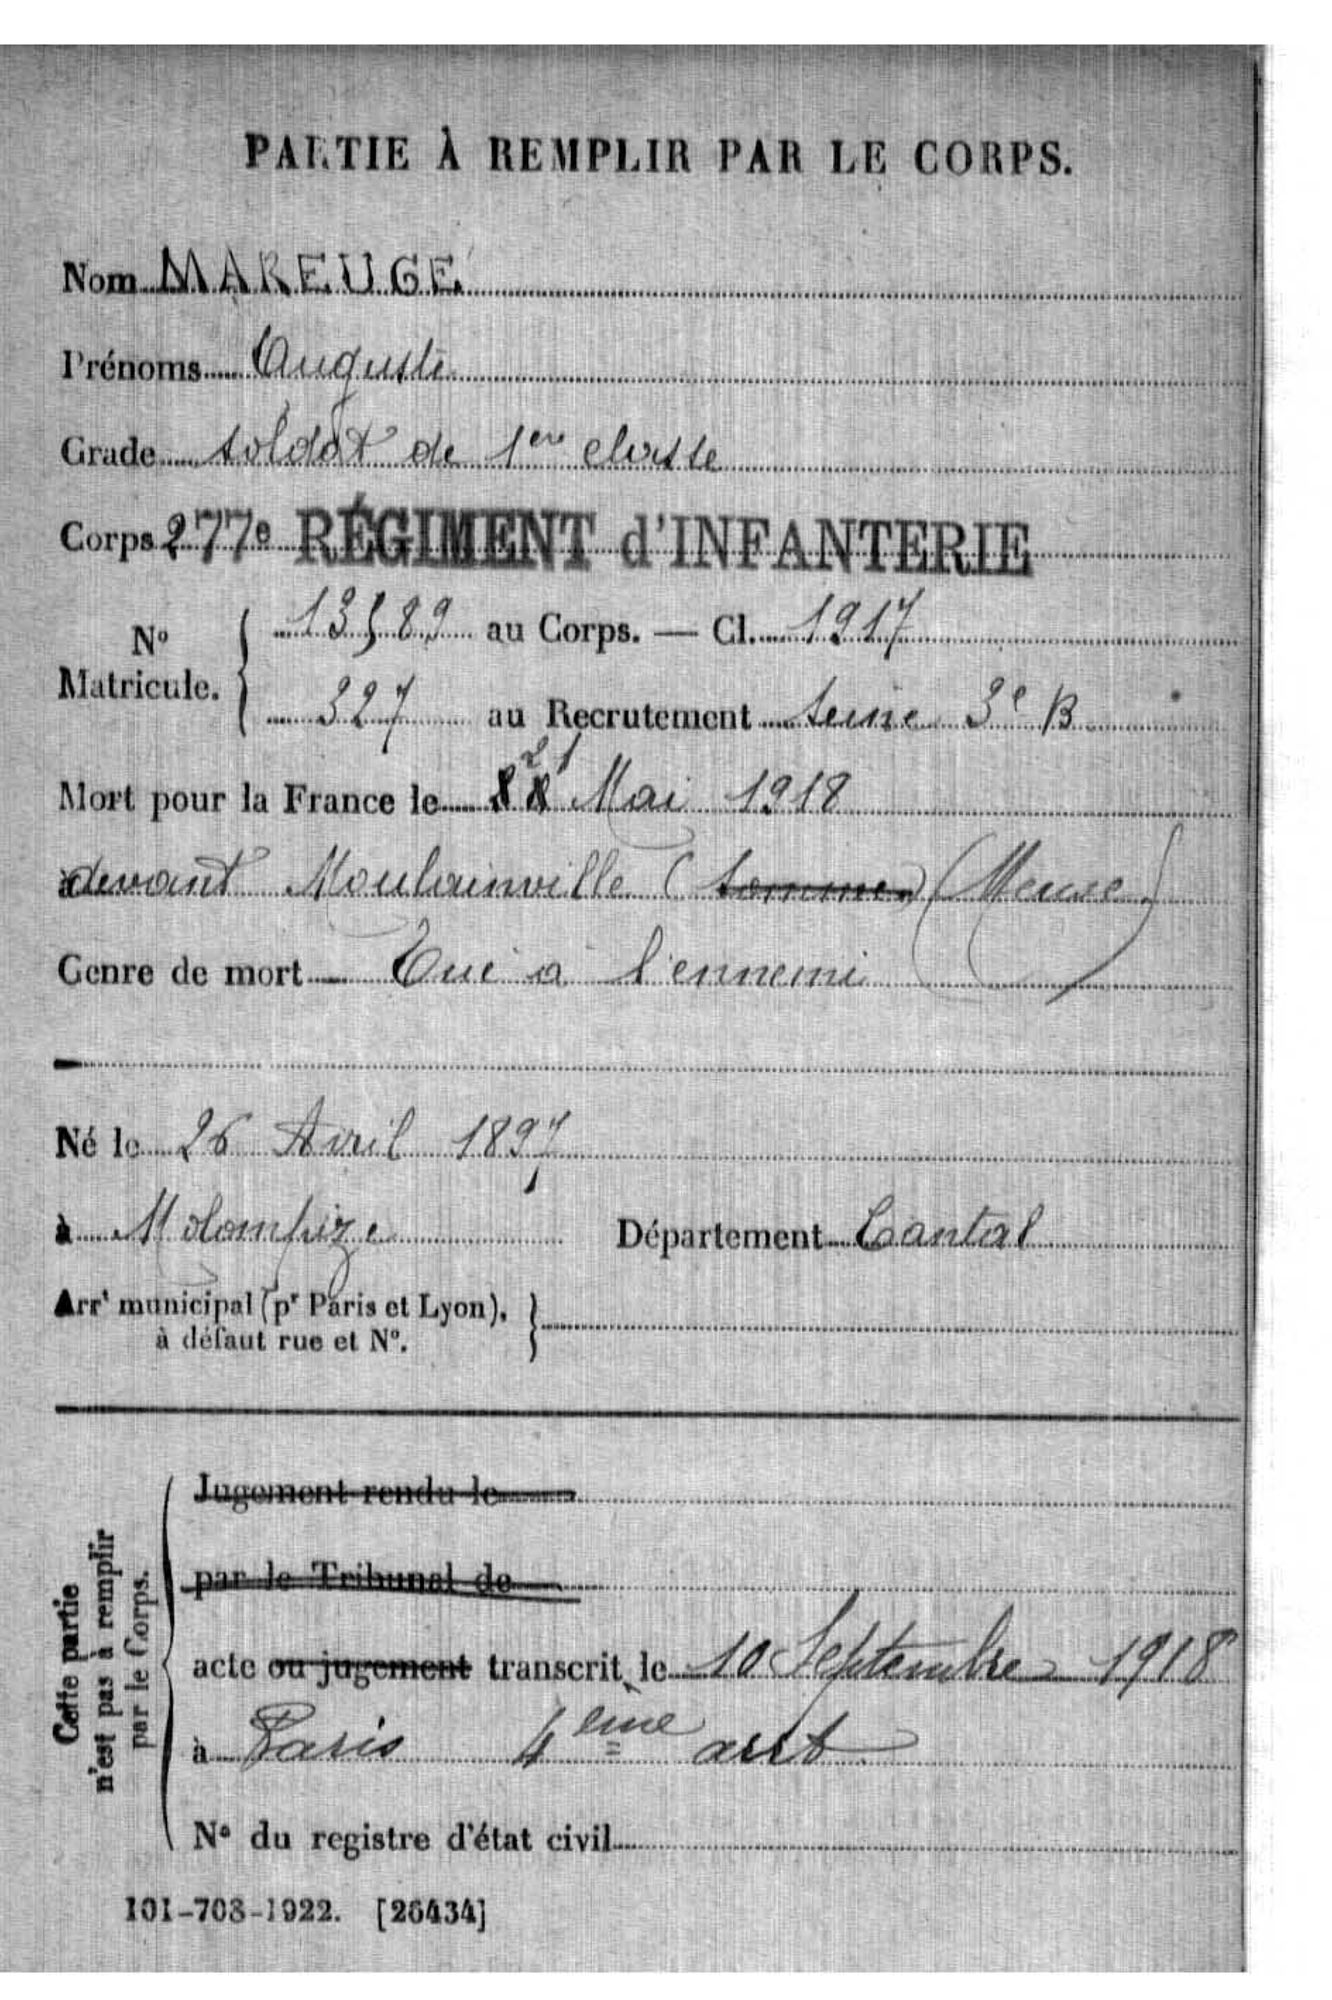 PARTIE À REMPLIR PAR LE CORPS.
Nom MAREUGE
Prénoms Auguste
Grade soldat de 1ère classe
Corps 277e RÉGIMENT d'INFANTERIE
N° Matricule. { 13589 au Corps. — Cl. 1917
327 au Recrutement Seine 3e B
Mort pour la France le 21 Mai 1918
devant Moulainville (Somme) (Meuse)
Genre de mort Tué à l'ennemi
Né le 26 Avril 1897
à Molompize Département Cantal
Arrt municipal (pr Paris et Lyon), }
à défaut rue et N°.
Cette partie
n'est pas à remplir
par le Corps.
Jugement rendu le
par le Tribunal de
acte ou jugement transcrit le 10 Septembre 1918
à Paris 4ème arrt
N° du registre d'état civil
101-708-1922. [26434]